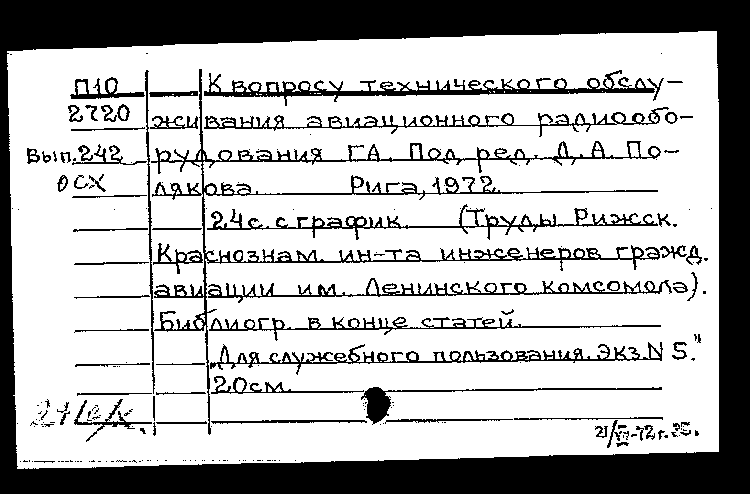 П10 К вопросу технического обслу-
2720 живания авиационного радиообо-
Вып.242 рудования ГА. Под ред. Д.А. По-
ОСХ лякова. Рига, 1972.
24с. с график. (Труды Рижск.
Краснознам. ин-та инженеров гражд.
авиации им. Ленинского комсомола).
Библиогр. в конце статей.
„Для служебного пользования. Экз.N 5."
20см.
21/VII-72г.